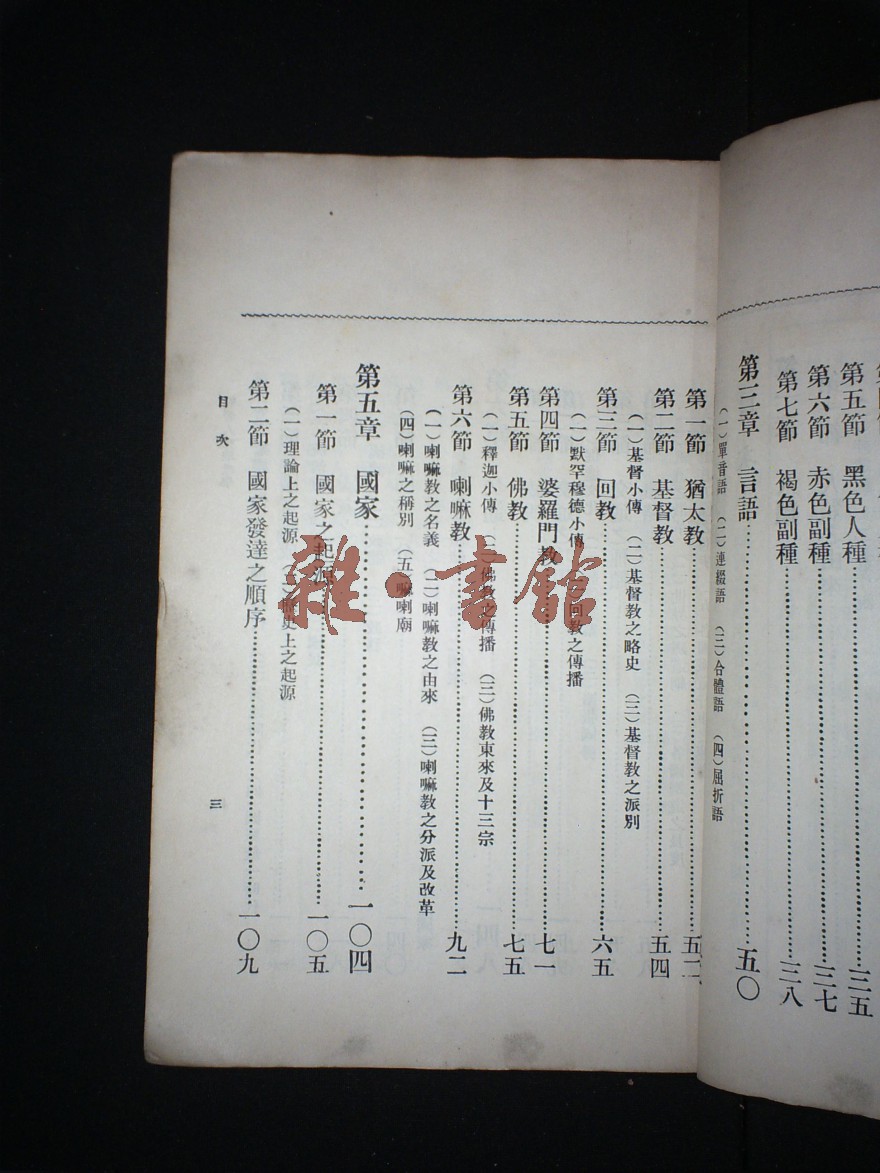 第五節 黑色人種……三五
第六節 赤色副種……三七
第七節 褐色副種……三八
第三章 言語……五〇
(一)單音語 (二)連綴語 (三)合體語 (四)屈折語
第一節 猶太教……五二
第二節 基督教……五四
(一)基督小傳 (二)基督教之略史 (三)基督教之派別
第三節 回教……六五
(一)默罕穆德小傳 (二)回教之傳播
第四節 婆羅門教……七一
第五節 佛教……七五
(一)釋迦小傳 (二)佛教之傳播 (三)佛教東來及十三宗
第六節 喇嘛教……九二
(一)喇嘛教之名義 (二)喇嘛教之由來 (三)喇嘛教之分派及改革
(四)喇嘛之稱別 (五)嘛喇廟
第五章 國家……一〇四
第一節 國家之起源……一〇五
(一)理論上之起源 (二)歷史上之起源
第二節 國家發達之順序……一〇九
目次
三
雜·書館